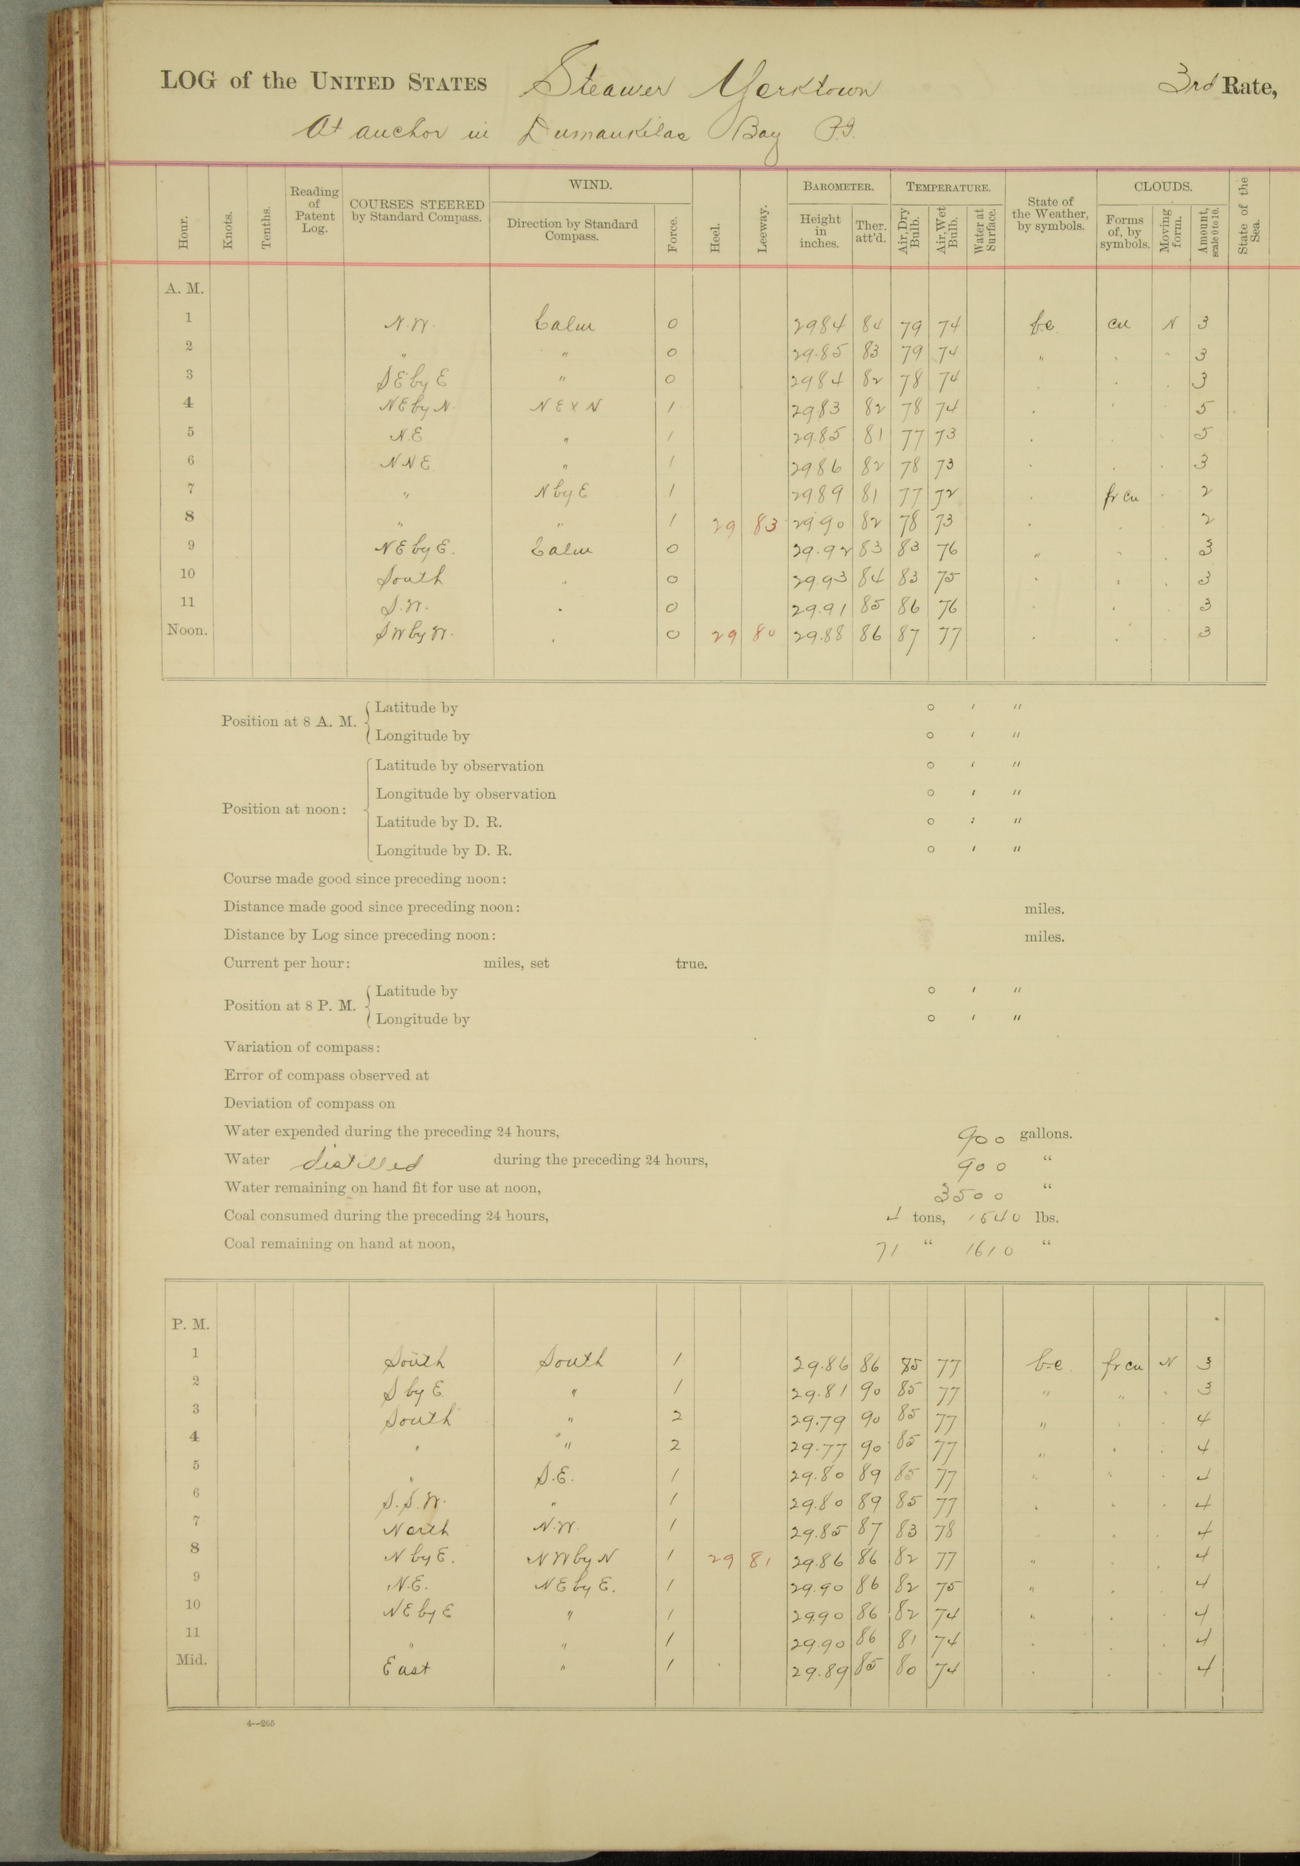 LOG of the UNITED STATES Steamer Yorktown 3rd Rate,
At anchor in Dumankilas Bay P.I.
Hour. Knots. Tenths. Reading of Patent Log. COURSES STEERED by Standard Compass. WIND. Direction by Standard Compass. Force. Heel. Leeway. BAROMETER. Height in inches. Ther. att'd. TEMPERATURE. Air, Dry Bulb. Air, Wet Bulb. Water at Surface. State of the Weather, by symbols. CLOUDS. Forms of, by symbols. Moving form. Amount, scale 0 to 10. State of the Sea.
A. M.
1 N.W. Calm 0 2984 84 79 74 b.c. cu N 3
2 " " 0 29.85 83 79 74 " " " 3
3 SE by E " 0 2984 82 78 74 " " " 3
4 NE by N. NE x N 1 2983 82 78 74 " " " 5
5 N.E " 1 29.85 81 77 73 " " " 5
6 NNE " 1 2986 82 78 73 " " " 3
7 " N by E 1 2989 81 77 72 " fr cu " 2
8 " " 1 29 83 2990 82 78 73 " " " 2
9 NE by E. Calm 0 29.92 83 83 76 " " " 3
10 South " 0 29.93 84 83 75 " " " 3
11 S.W. " 0 29.91 85 86 76 " " " 3
Noon. SW by W. " 0 29 80 29.88 86 87 77 " " " 3
Position at 8 A. M. { Latitude by ° ′ ″
Longitude by ° ′ ″
Position at noon: { Latitude by observation ° ′ ″
Longitude by observation ° ′ ″
Latitude by D. R. ° ′ ″
Longitude by D. R. ° ′ ″
Course made good since preceding noon:
Distance made good since preceding noon: miles.
Distance by Log since preceding noon: miles.
Current per hour: miles, set true.
Position at 8 P. M. { Latitude by ° ′ ″
Longitude by ° ′ ″
Variation of compass:
Error of compass observed at
Deviation of compass on
Water expended during the preceding 24 hours, 900 gallons.
Water distilled during the preceding 24 hours, 900 "
Water remaining on hand fit for use at noon, 3500 "
Coal consumed during the preceding 24 hours, 4 tons, 1540 lbs.
Coal remaining on hand at noon, 71 " 1610 "
P. M.
1 South South 1 29.86 86 85 77 b.c. fr cu N 3
2 S by E. " 1 29.81 90 85 77 " " 3
3 South " 2 29.79 90 85 77 " " " 4
4 " " 2 29.77 90 85 77 " " " 4
5 " S.E. 1 29.80 89 85 77 " " " 4
6 S.S.W. " 1 29.80 89 85 77 " " " 4
7 North N.W. 1 29.85 87 83 78 " " " 4
8 N by E. NW by N 1 29 81 29.86 86 82 77 " " " 4
9 N.E. NE by E. 1 29.90 86 82 75 " " " 4
10 NE by E " 1 2990 86 82 74 " " " 4
11 " " 1 29.90 86 81 74 " " " 4
Mid. East " 1 29.89 85 80 74 " " " 4
4—265